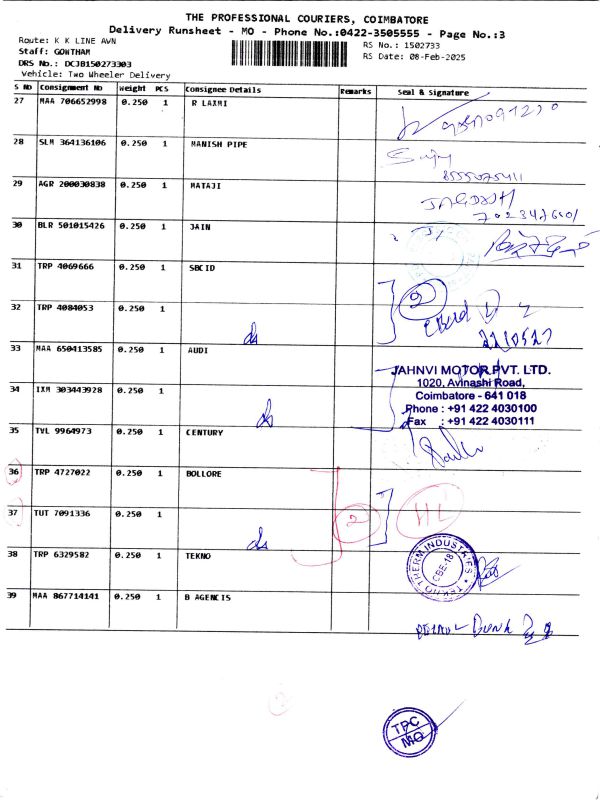 THE PROFESSIONAL COURIERS, COIMBATORE
Delivery Runsheet - MO - Phone No.:0422-3505555 - Page No.:3
Route: K K LINE AWN
RS No.: 1502733
Staff: GOWTHAM
RS Date: 08-Feb-2025
DRS No.: DCJB150273303
Vehicle: Two Wheeler Delivery
S No Consignment No Weight PCS Consignee Details Remarks Seal & Signature
27 MAA 706652998 0.250 1 R LAXMI
28 SLM 364136106 0.250 1 MANISH PIPE
29 AGR 200030838 0.250 1 MATAJI
30 BLR 501015426 0.250 1 JAIN
31 TRP 4069666 0.250 1 SBCID
2
32 TRP 4084053 0.250 1
ds
33 MAA 650413585 0.250 1 AUDI
JAHNVI MOTOR PVT. LTD.
1020, Avinashi Road,
Coimbatore - 641 018
Phone : +91 422 4030100
Fax : +91 422 4030111
34 IXM 303443928 0.250 1
ds
35 TVL 9964973 0.250 1 CENTURY
36 TRP 4727022 0.250 1 BOLLORE
37 TUT 7091336 0.250 1
ds
2
HL
38 TRP 6329582 0.250 1 TEKNO
TEKNO THERM INDUSTRIES
CBE-18
39 MAA 867714141 0.250 1 B AGENCIS
2
TPC
MO